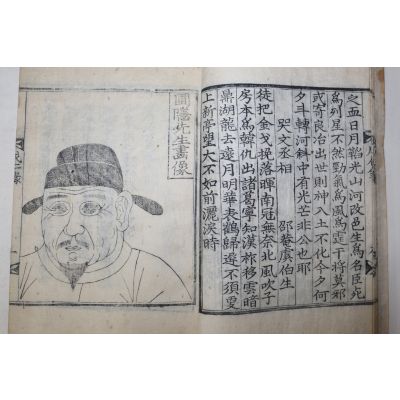 之血日月韜光山河改邑生為名臣死
為列星不然勁氣為風為霆干將莫邪
或寄良冶出世則神入土不化今夕何
夕斗轉河斜中有光芒非公也耶
哭文丞相　邵菴虞伯生
徒把金戈挽落暉南冠無奈北風吹子
房本為韓仇出諸葛寧知漢祚移雲暗
鼎湖龍去遠月明華表鶴歸遲不須更
上新亭望大不如前灑淚時
圃隱先生畫像